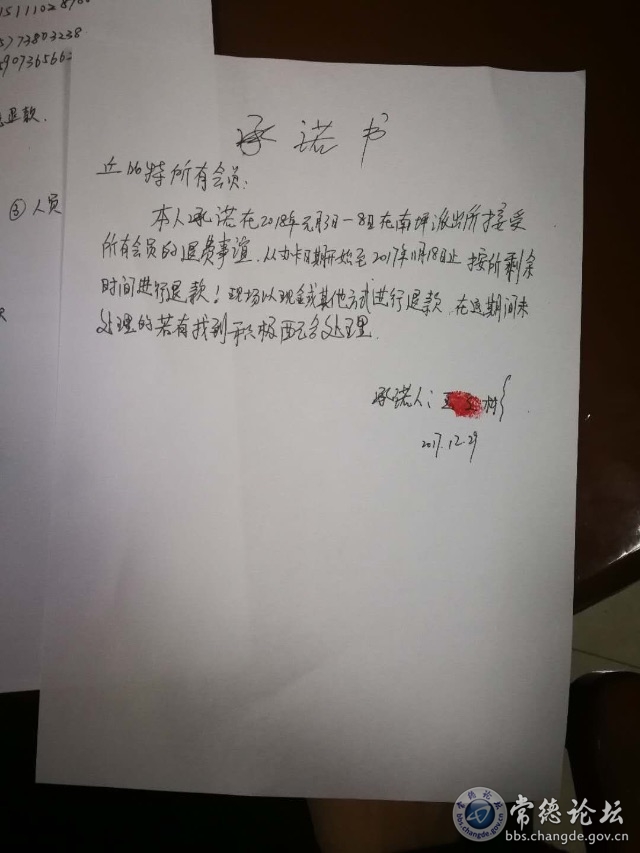 15111028700
15773803238
5907365662
退款.
③人员
承诺书
丘比特所有会员:
本人承诺在2018年元月3日-8日在南坪派出所接受
所有会员的退费事谊.从办卡日期开始至2017年11月18日止 按所剩余
时间进行退款!现场以现金或其他方式进行退款.在这期间未
处理的若有找到积极配合处理.
承诺人:
村
2017.12.29
常德论坛
bbs.changde.gov.cn